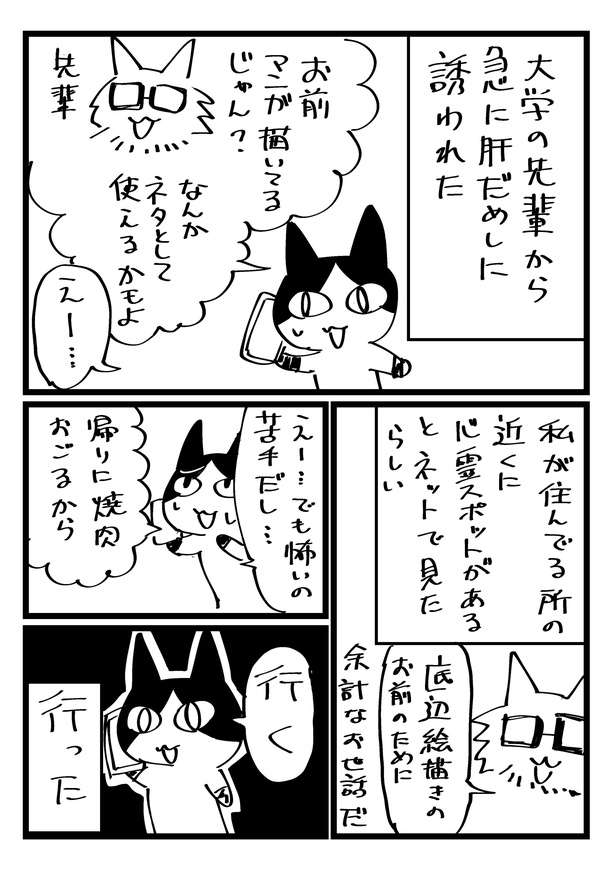 大学の先輩から
急に肝だめしに
誘われた
お前
マンガ描いてる
じゃん？
先輩
なんか
ネタとして
使えるかもよ
えー…
私が住んでる所の
近くに
心霊スポットがある
とネットで見た
らしい
底辺絵描きの
お前のために
余計なお世話だ
えー…でも怖いの
苦手だし…
帰りに焼肉
おごるから
行く
行った